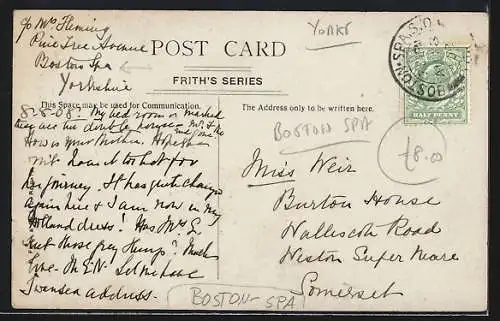 c/o Mrs Fleming
Pine Tree Avenue
Boston Spa
Yorkshire
YORKS
POST CARD
FRITH'S SERIES
This Space may be used for Communication.
The Address only to be written here.
BOSTON SPA
HALFPENNY
8-8-08. My bed room is marked
they are the double
How is your Mother. Hope she
not have it too hot for
her journey. It has quite changed
again here & I am now in my
Holland dress! Has Mrs G.
sent those hemp? Much
love M.E.N. Let me have
Swansea address.
BOSTON SPA
£8.00
Miss Weir
Burton House
Walliscote Road
Weston Super Mare
Somerset
BOSTON-SPA